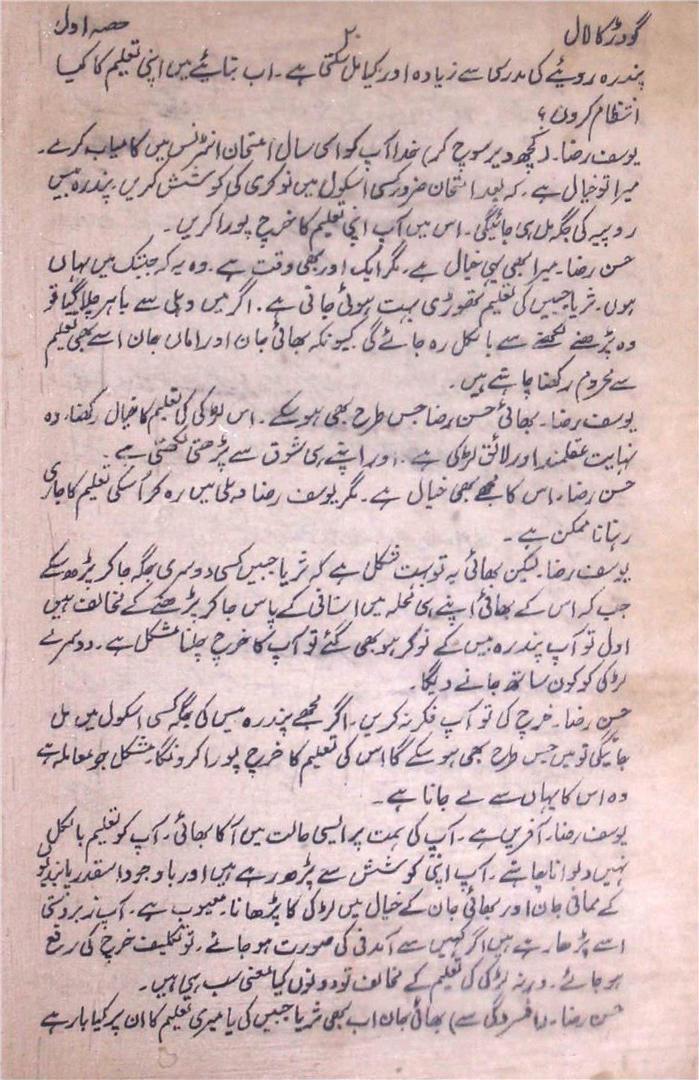 گودڑ کا لال ۲ حصہ اول
پندرہ روپئے کی مدرسی سے زیادہ اور کیا مل سکتی ہے۔ اب بتائیے میں اپنی تعلیم کا کیا
انتظام کروں؟
یوسف رضا۔ (کچھ دیر سوچ کر) خدا آپ کو اسی سال امتحان انٹرنس میں کامیاب کرے۔
میرا تو خیال ہے۔ کہ بعد امتحان ضرور کسی اسکول میں نوکری کی کوشش کریں۔ پندرہ بیس
روپیہ کی جگہ مل ہی جائیگی۔ اس میں آپ اپنی تعلیم کا خرچ پورا کریں۔
حسن رضا۔ میرا بھی یہی خیال ہے۔ مگر ایک اور بھی وقت ہے۔ وہ یہ کہ جبتک میں یہاں
ہوں۔ ثریا جبیں کی تعلیم تھوڑی بہت ہوئی جاتی ہے۔ اگر میں دہلی سے باہر چلا گیا تو
وہ پڑھنے لکھنے سے بالکل رہ جائے گی کیونکہ بھائی جان اور اماں جان اسے بھی تعلیم
سے محروم رکھنا چاہتے ہیں۔
یوسف رضا۔ بھائی حسن رضا جس طرح بھی ہو سکے۔ اس لڑکی کی تعلیم کا خیال رکھنا۔ وہ
نہایت عقلمند اور لائق لڑکی ہے۔ اور اپنے ہی شوق سے پڑھتی لکھتی ہے۔
حسن رضا۔ اس کا مجھے بھی خیال ہے۔ مگر یوسف رضا دہلی میں رہ کر اُسکی تعلیم کا جاری
رہنا ناممکن ہے۔
یوسف رضا۔ لیکن بھائی یہ تو بہت مشکل ہے کہ ثریا جبیں کسی دوسری جگہ جا کر پڑھ سکے
جب کہ اس کے بھائی اپنے ہی محلہ میں استانی کے پاس جا کر پڑھنے کے مخالف ہیں
اول تو آپ پندرہ بیس کے نوکر ہو بھی گئے تو آپ کا خرچ چلنا مشکل ہے۔ دوسرے
لڑکی کو کون ساتھ جانے دیگا۔
حسن رضا۔ خرچ کی تو آپ فکر نہ کریں۔ اگر مجھے پندرہ بیس کی جگہ کسی اسکول میں مل
جائیگی تو میں جس طرح بھی ہو سکے گا اس کی تعلیم کا خرچ پورا کرونگا۔ مشکل جو معاملہ ہے
وہ اس کا یہاں سے لے جانا ہے۔
یوسف رضا۔ آفریں ہے۔ آپ کی ہمت پر ایسی حالت میں آکا بھائی۔ آپ کو تعلیم بالکل
نہیں دلوانا چاہتے۔ آپ اپنی کوشش سے پڑھ رہے ہیں اور باوجود اسقدر پابندیوں
کے ممانی جان اور بھائی جان کے خیال میں لڑکی کا پڑھانا۔ معیوب ہے۔ آپ زبردستی
اسے پڑھا رہے ہیں اگر کہیں سے آمدنی کی صورت ہو جائے۔ تو تکلیف خرچ کی رفع
ہو جائے۔ ورنہ لڑکی کی تعلیم کے مخالف تو دونوں کیا معنی سب ہی ہیں۔
حسن رضا۔ (افسردگی سے) بھائی جان اب بھی ثریا جبیں کی یا میری تعلیم کا ان پر کیا بار ہے